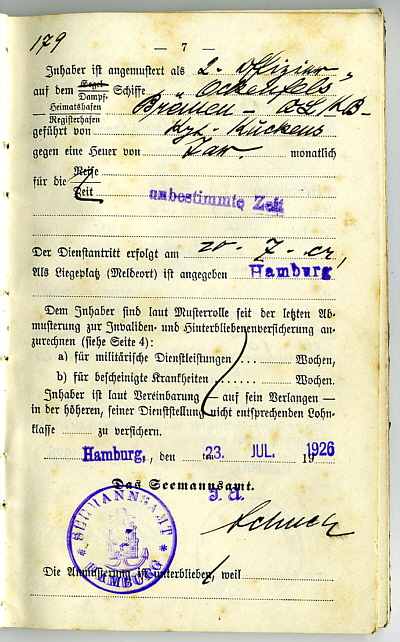 179
— 7 —
Inhaber ist angemustert als 2. Offizier
auf dem Segel- Dampf- Schiffe "Ockenfels"
Heimatshafen Registerhafen Bremen -
geführt von Kpt. Kuckens
gegen eine Heuer von Tar. monatlich
für die Reise
Zeit unbestimmte Zeit
Der Dienstantritt erfolgt am 20. 7. cr,
Als Liegeplatz (Meldeort) ist angegeben Hamburg
Dem Inhaber sind laut Musterrolle seit der letzten Ab-
musterung zur Invaliden- und Hinterbliebenenversicherung an-
zurechnen (siehe Seite 4):
a) für militärische Dienstleistungen .... Wochen,
b) für bescheinigte Krankheiten ....... Wochen.
Inhaber ist laut Vereinbarung — auf sein Verlangen —
in der höheren, seiner Dienststellung nicht entsprechenden Lohn-
klasse ........ zu versichern.
Hamburg, den 23. JUL. 1926
Das Seemannsamt.
J. A.
SEEMANNSAMT
HAMBURG
Die Anmusterung ist unterblieben, weil